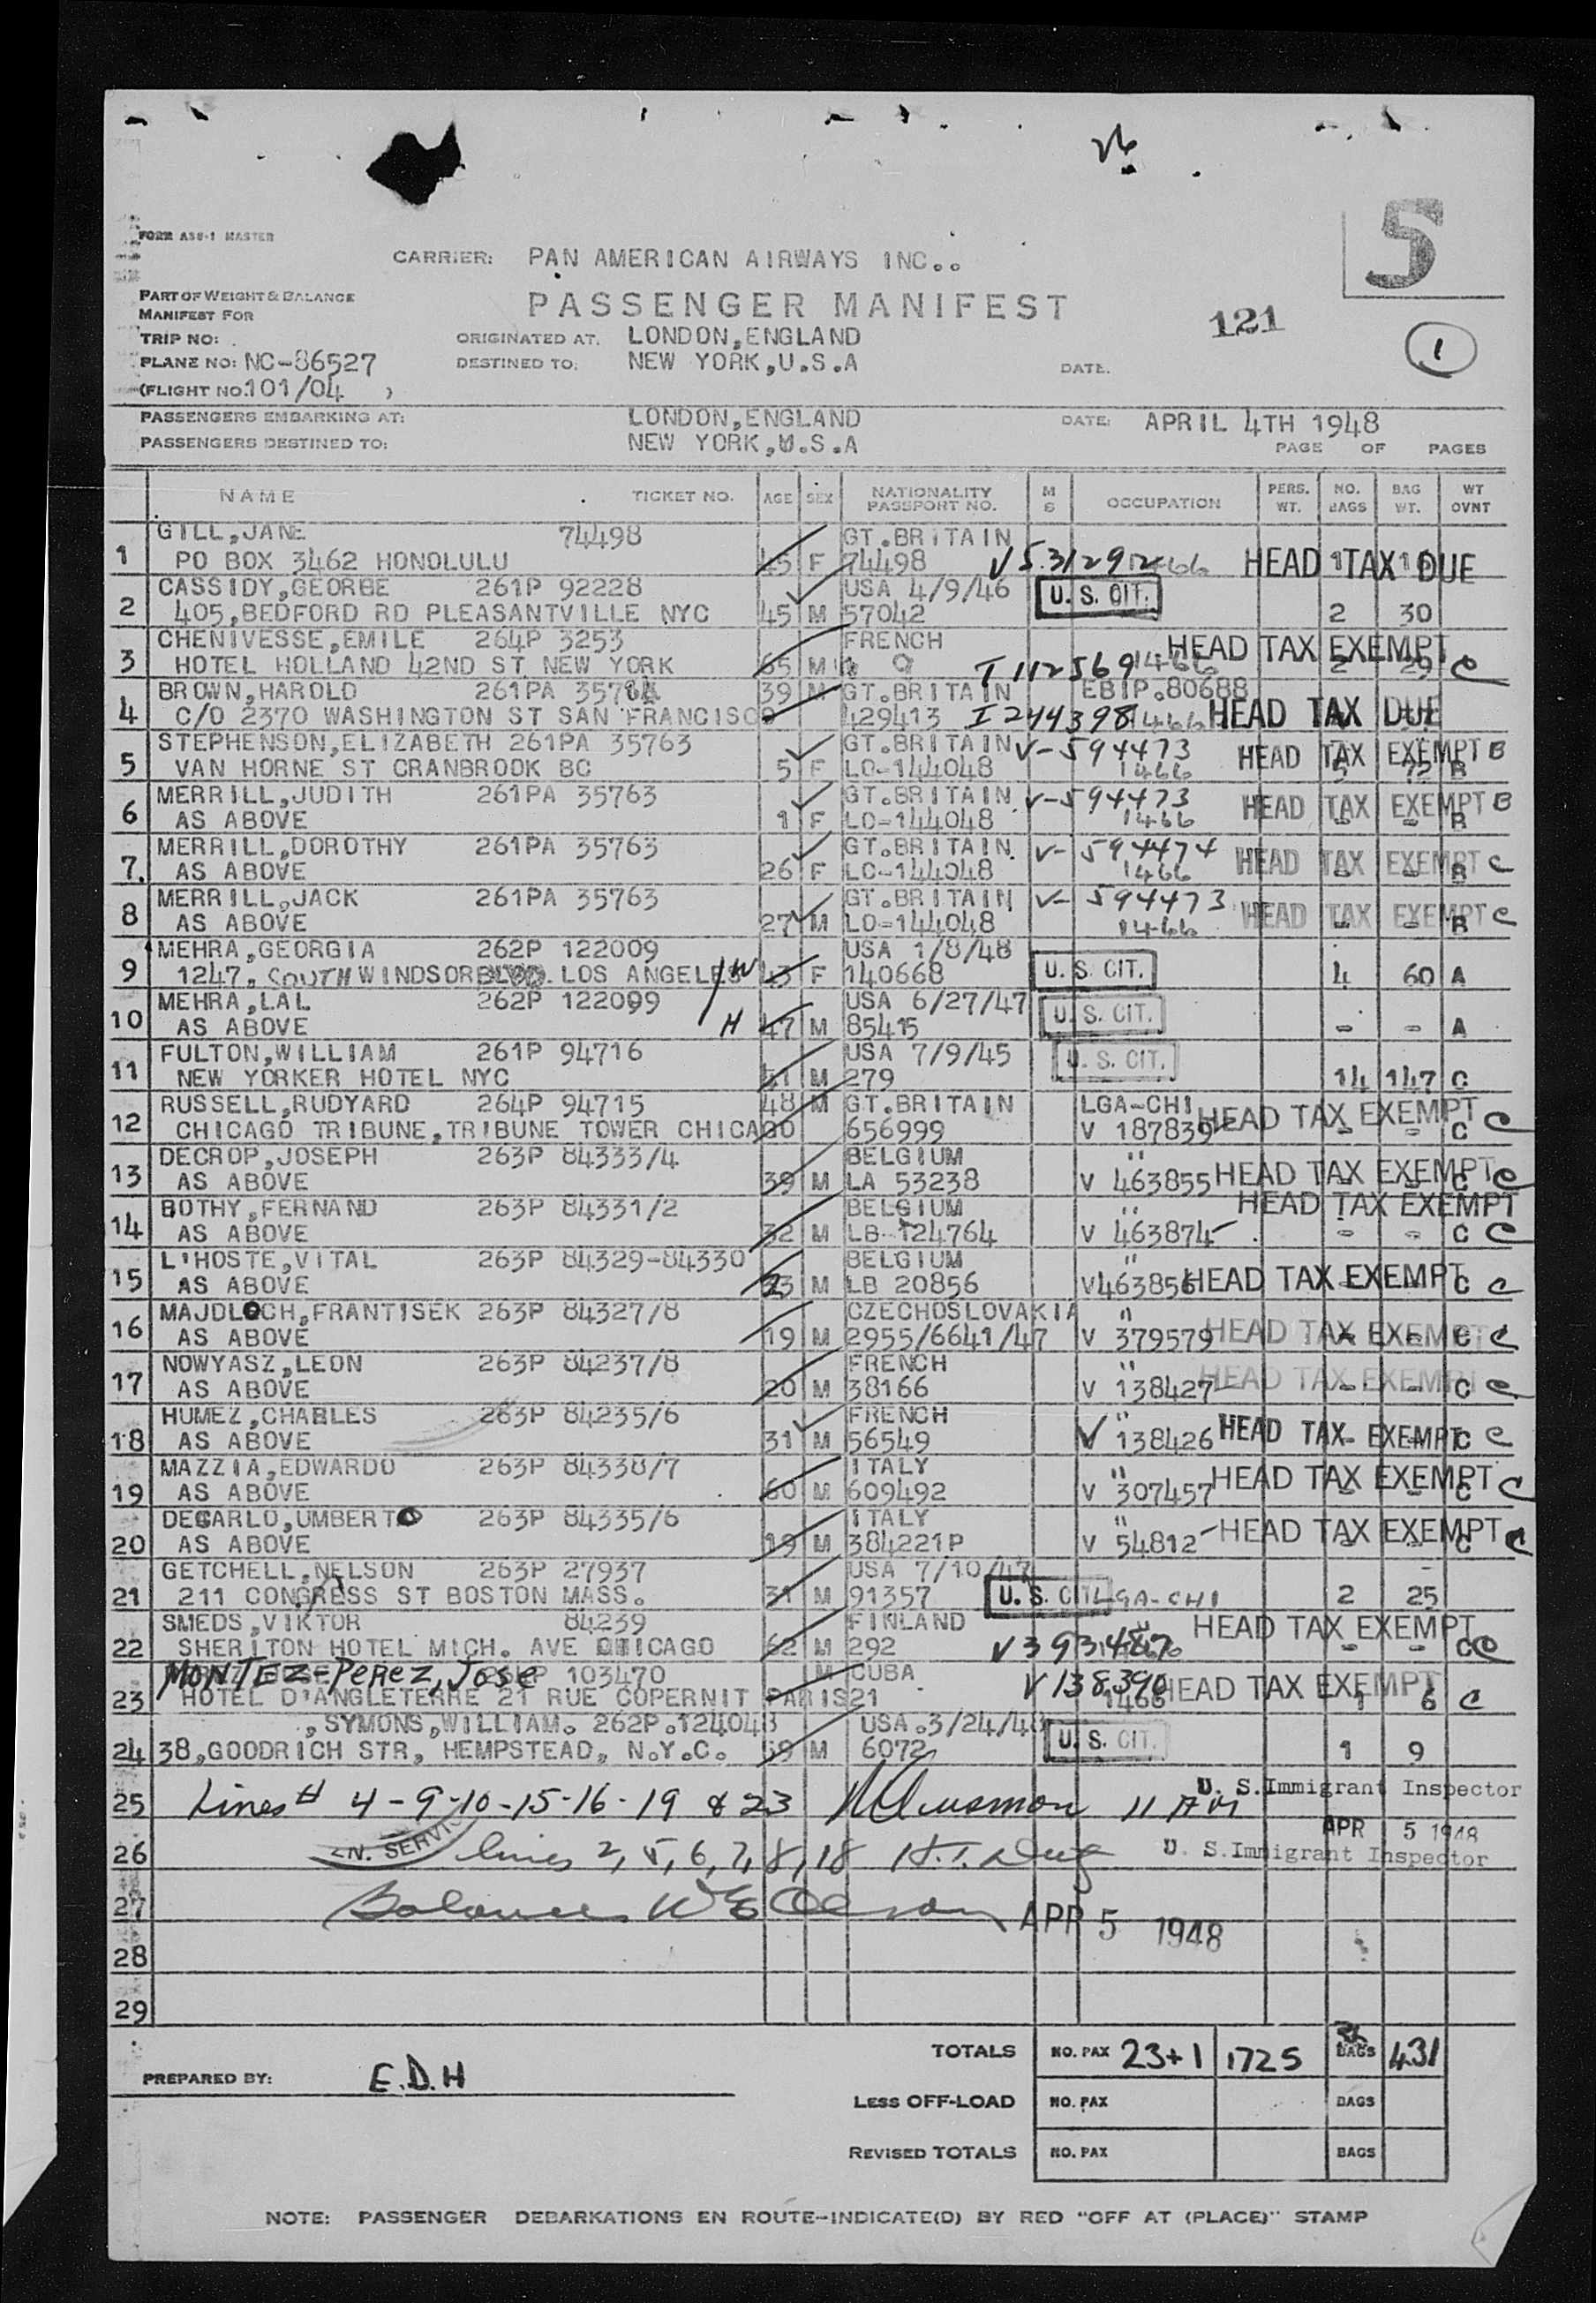 26
5
FORM A38-1 MASTER
CARRIER: PAN AMERICAN AIRWAYS INC..
PART OF WEIGHT & BALANCE
MANIFEST FOR
PASSENGER MANIFEST
121
1
TRIP NO: ORIGINATED AT. LONDON,ENGLAND
PLANE NO: NC-86527 DESTINED TO: NEW YORK,U.S.A DATE.
(FLIGHT NO.101/04 )
PASSENGERS EMBARKING AT: LONDON,ENGLAND DATE: APRIL 4TH 1948
PASSENGERS DESTINED TO: NEW YORK,U.S.A PAGE OF PAGES
NAME TICKET NO. AGE SEX NATIONALITY PASSPORT NO. M S OCCUPATION PERS. WT. NO. BAGS BAG WT. WT OVNT
GILL,JANE 74498 GT.BRITAIN
1 PO BOX 3462 HONOLULU 45 F 74498 HEAD TAX DUE
CASSIDY,GEORBE 261P 92228 USA 4/9/46 U. S. CIT.
2 405,BEDFORD RD PLEASANTVILLE NYC 45 M 57042 2 30
CHENIVESSE,EMILE 264P 3253 FRENCH HEAD TAX EXEMPT
3 HOTEL HOLLAND 42ND ST NEW YORK 65 M T112569 1466 2 29 C
BROWN,HAROLD 261PA 39 M GT.BRITAIN EBIP.80688
4 C/O 2370 WASHINGTON ST SAN FRANCISCO 429413 I244398 1466 HEAD TAX DUE
STEPHENSON,ELIZABETH 261PA 35763 GT.BRITAIN V-594473 HEAD TAX EXEMPT B
5 VAN HORNE ST CRANBROOK BC 5 F LO-144048 1466 72 B
MERRILL,JUDITH 261PA 35763 GT.BRITAIN V-594473 HEAD TAX EXEMPT B
6 AS ABOVE 1 F LO-144048 1466 - - B
MERRILL,DOROTHY 261PA 35763 GT.BRITAIN V- 594474 HEAD TAX EXEMPT C
7. AS ABOVE 26 F LO-144048 1466 - - B
MERRILL,JACK 261PA 35763 GT.BRITAIN V- 594473 HEAD TAX EXEMPT C
8 AS ABOVE 27 M LO-144048 1466 - - B
MEHRA,GEORGIA 262P 122009 USA 1/8/48
9 1247. SOUTH WINDSOR BLVD. LOS ANGELES W 43 F 140668 U. S. CIT. 4 60 A
MEHRA,LAL 262P 122099 USA 6/27/47 U. S. CIT.
10 AS ABOVE H 47 M 85415 - - A
FULTON,WILLIAM 261P 94716 USA 7/9/45 U. S. CIT.
11 NEW YORKER HOTEL NYC 51 M 279 14 147 C
RUSSELL,RUDYARD 264P 94715 48 M GT.BRITAIN LGA-CHI HEAD TAX EXEMPT
12 CHICAGO TRIBUNE,TRIBUNE TOWER CHICAGO 656999 V 187839 - - C C
DECROP,JOSEPH 263P 84333/4 BELGIUM "
13 AS ABOVE 39 M LA 53238 V 463855 HEAD TAX EXEMPT C C
BOTHY,FERNAND 263P 84331/2 BELGIUM " HEAD TAX EXEMPT
14 AS ABOVE 32 M LB-124764 V 463874 - - C C
L'HOSTE,VITAL 263P 84329-84330 BELGIUM "
15 AS ABOVE 23 M LB 20856 V463856 HEAD TAX EXEMPT C C
MAJDLOCH,FRANTISEK 263P 84327/8 CZECHOSLOVAKIA "
16 AS ABOVE 19 M 2955/6641/47 V 379579 HEAD TAX EXEMPT C C
NOWYASZ,LEON 263P 84237/8 FRENCH "
17 AS ABOVE 20 M 38166 V 138427 HEAD TAX EXEMPT - - C C
HUMEZ,CHARLES 263P 84235/6 FRENCH "
18 AS ABOVE 31 M 56549 V 138426 HEAD TAX EXEMPT C C
MAZZIA,EDWARDO 263P 84338/7 ITALY "
19 AS ABOVE 60 M 609492 V 307457 HEAD TAX EXEMPT - - C C
DECARLO,UMBERTO 263P 84335/6 ITALY "
20 AS ABOVE 19 M 384221P V 54812 HEAD TAX EXEMPT - - C C
GETCHELL,NELSON 263P 27937 USA 7/10/47
21 211 CONGRESS ST BOSTON MASS. 31 M 91357 U. S. CIT. LGA-CHI 2 25
SMEDS,VIKTOR 84239 FINLAND HEAD TAX EXEMPT
22 SHERITON HOTEL MICH. AVE CHICAGO 62 M 292 - - C C
MONTEZ-PEREZ, JOSE 103470 M CUBA V138390 HEAD TAX EXEMPT
23 HOTEL D'ANGLETERRE 21 RUE COPERNIT PARIS 21 1466 1 6 C
,SYMONS,WILLIAM. 262P.124048 USA.3/24/48 U. S. CIT.
24 38,GOODRICH STR, HEMPSTEAD, N.Y.C. 59 M 6072 1 9
25 Lines # 4-9-10-15-16-19 & 23 11 AM U. S. Immigrant Inspector
APR 5 1948
26 IN. SERVIC lines 2, 5, 6, 7, 8, 18 U. S. Immigrant Inspector
27 Balance APR 5 1948
28
29
TOTALS NO. PAX 23+1 1725 BAGS 431
PREPARED BY: E.D.H
LESS OFF-LOAD NO. PAX BAGS
REVISED TOTALS NO. PAX BAGS
NOTE: PASSENGER DEBARKATIONS EN ROUTE-INDICATE(D) BY RED "OFF AT (PLACE)" STAMP